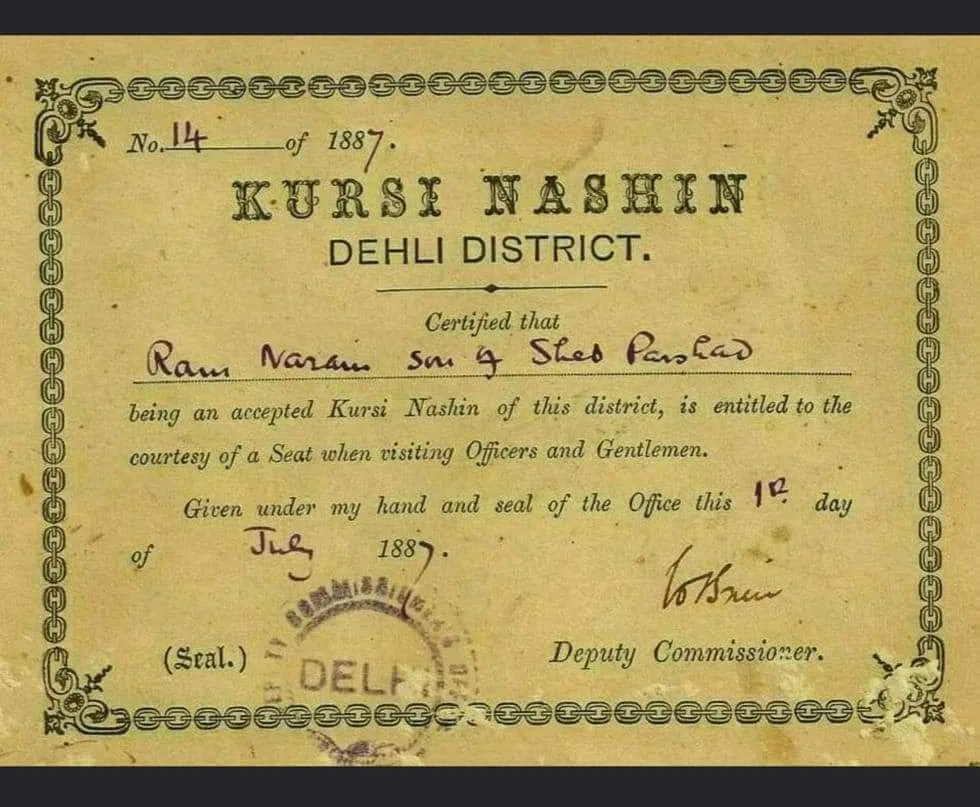 No. 14 of 1887.
KURSI NASHIN
DEHLI DISTRICT.
Certified that
Ram Narain son of Sheo Parshad
being an accepted Kursi Nashin of this district, is entitled to the
courtesy of a Seat when visiting Officers and Gentlemen.
Given under my hand and seal of the Office this 1st day
of July 1887.
(Seal.)
DEPUTY COMMISSIONER'S
DELHI
Deputy Commissioner.